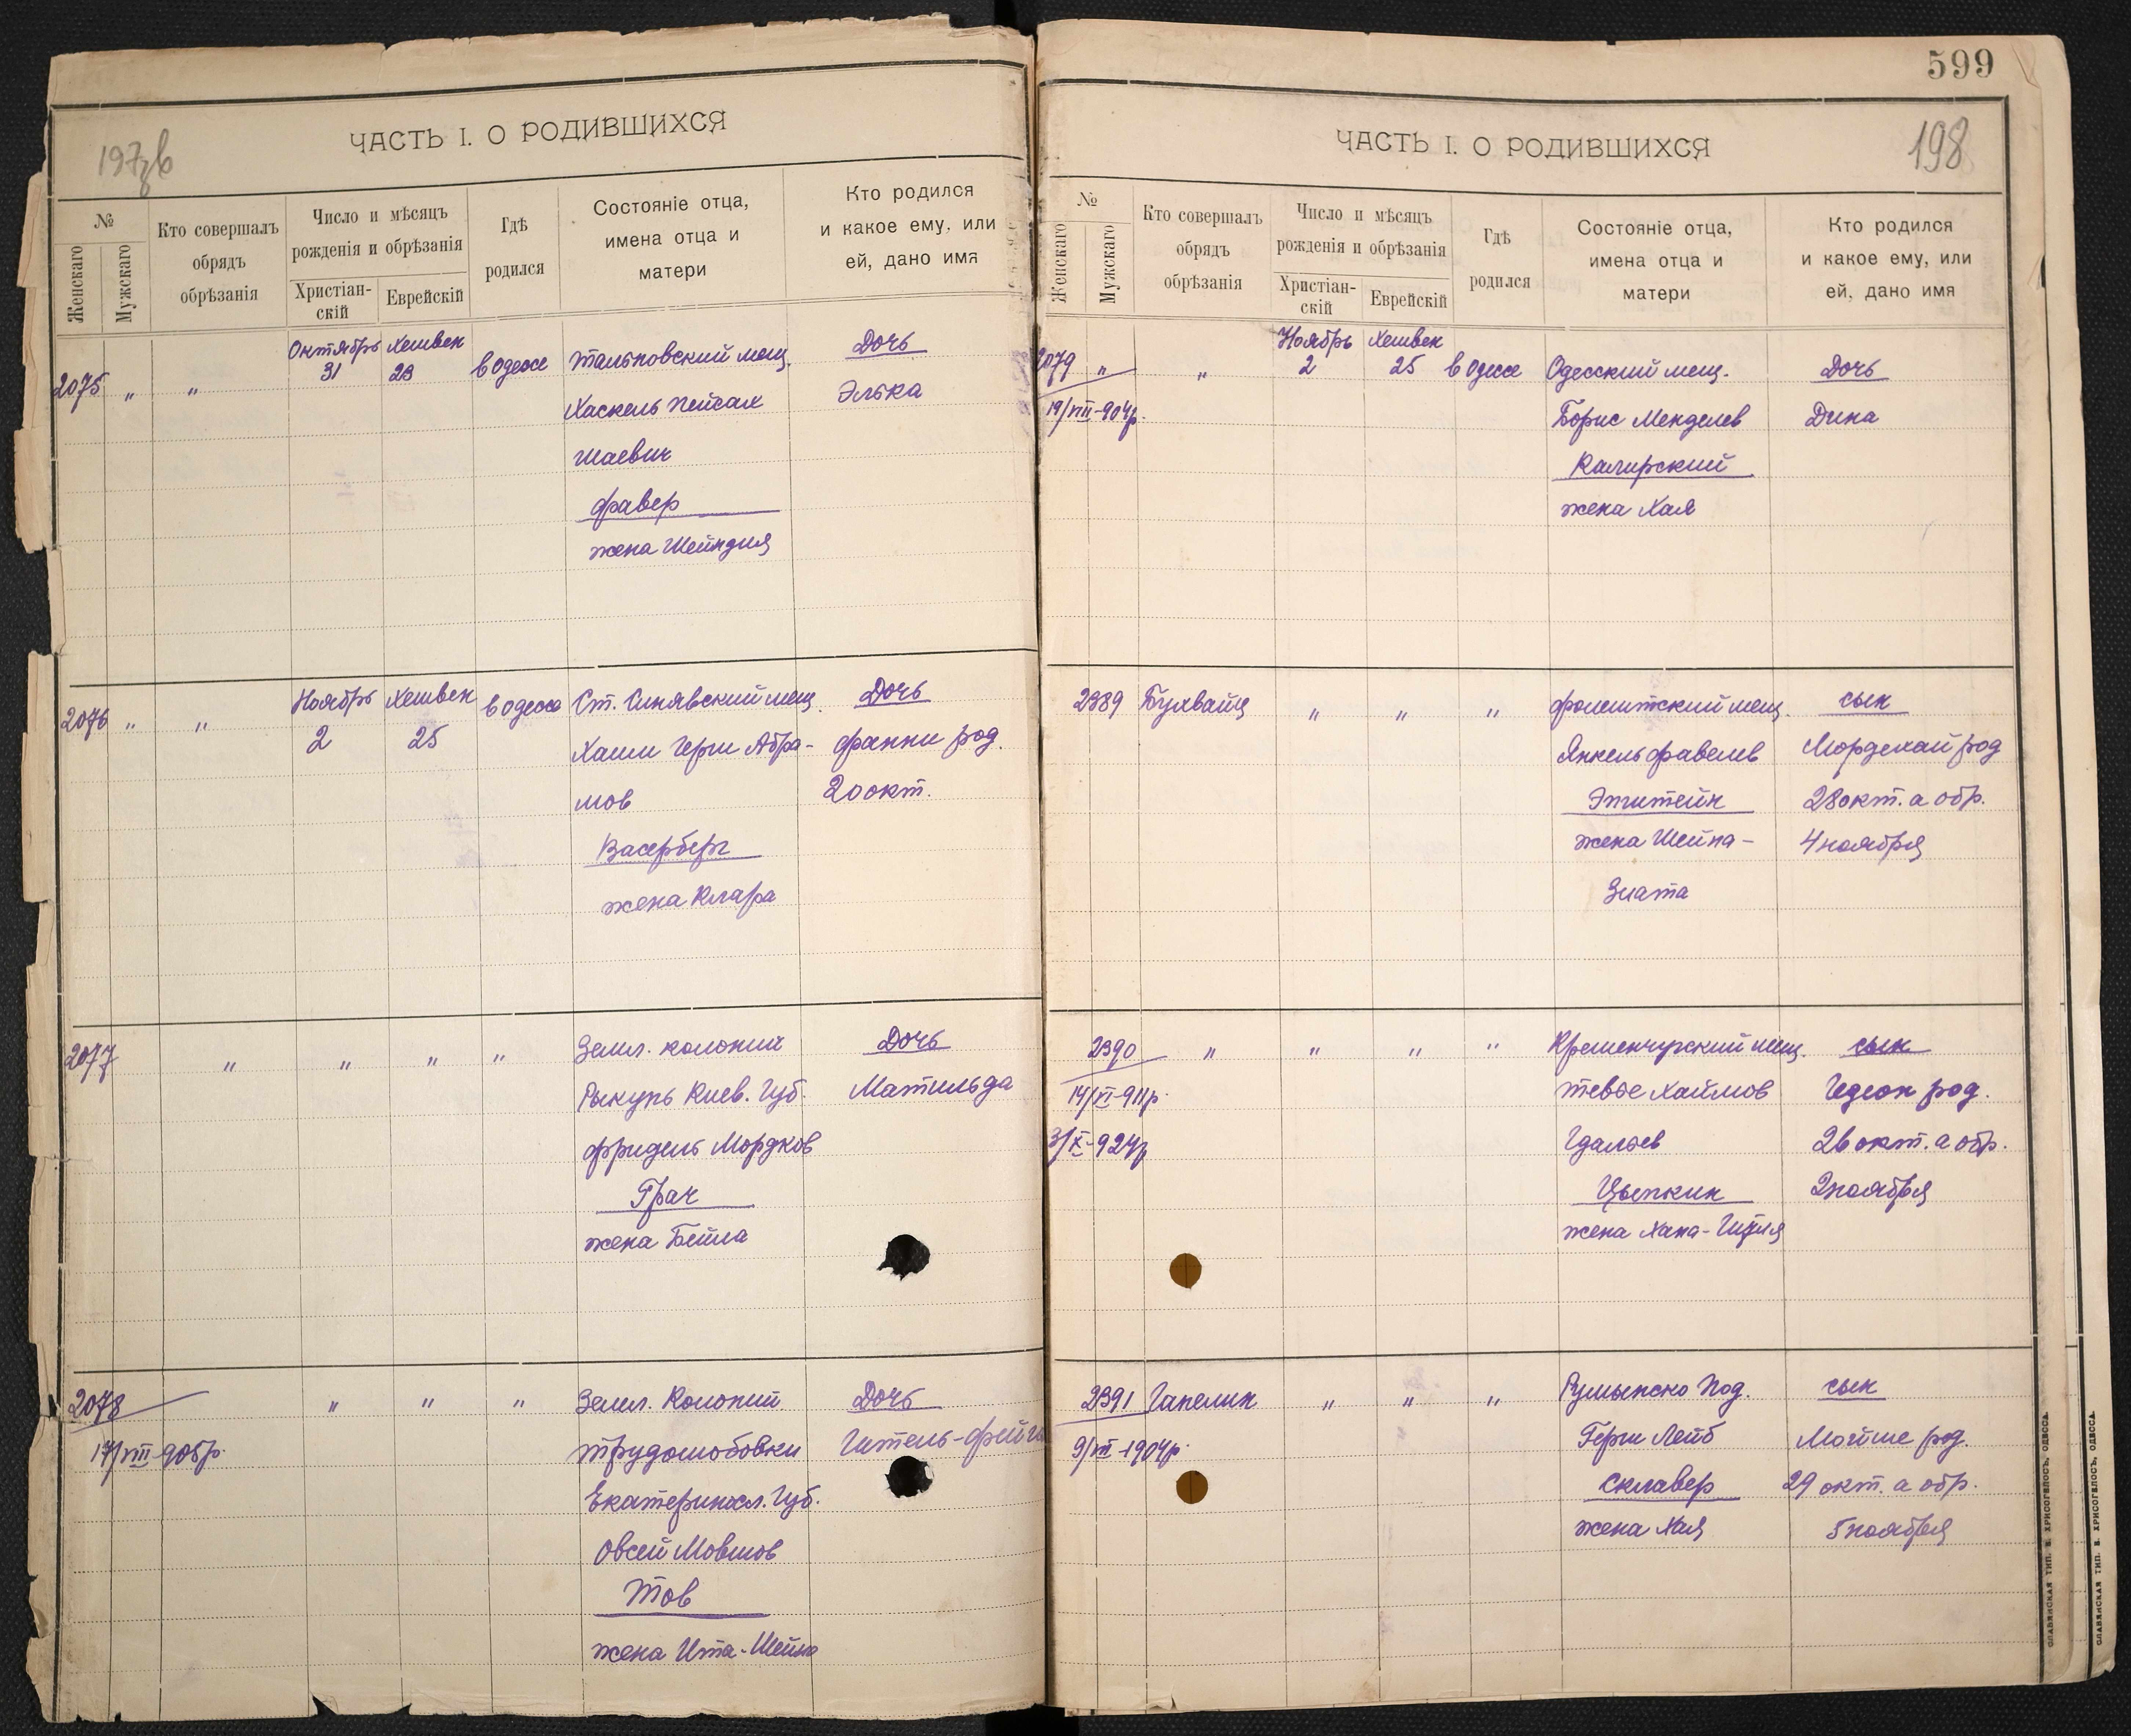 197зв
ЧАСТЬ I. О РОДИВШИХСЯ
№
Женскаго
Мужскаго
Кто совершалъ
обрядъ
обрѣзанія
Число и мѣсяцъ
рожденія и обрѣзанія
Христіан-
скій
Еврейскій
Гдѣ
родился
Состояніе отца,
имена отца и
матери
Кто родился
и какое ему, или
ей, дано имя
2075 " "
Октябрь 31
Хешвен 23
в Одессе
Тальновский мещ.
Хаскель Пейсах
Шаевич
Фавер
жена Шейндля
Дочь
Элька
2076 " "
Ноябрь 2
Хешвен 25
в Одессе
Ст. Синявский мещ.
Хаим Герш Абра-
мов
Васерберг
жена Клара
Дочь
Фанни род.
20 окт.
2077 " " " "
Земл. колонии
Рыкунь Киев. Губ.
Фридель Мордков
Грач
жена Бейла
Дочь
Матильда
2078 " " "
17/VIII-905р.
Земл. Колоний
Трудолюбовки
Екатериносл. Губ.
Овсей Мовшов
Тов
жена Ита-Шейна
Дочь
Гитель-Фейга
599
198
ЧАСТЬ I. О РОДИВШИХСЯ
№
Женскаго
Мужскаго
Кто совершалъ
обрядъ
обрѣзанія
Число и мѣсяцъ
рожденія и обрѣзанія
Христіан-
скій
Еврейскій
Гдѣ
родился
Состояніе отца,
имена отца и
матери
Кто родился
и какое ему, или
ей, дано имя
2079 " "
19/VIII-904р.
Ноябрь 2
Хешвен 25
в Одессе
Одесский мещ.
Борис Менделев
Калирский
жена Хая
Дочь
Дина
2389 Бухвайц " " "
мещ.
Янкель Фавелев
Эпштейн
жена Шейна-
Злата
сын
Мордехай род
28 окт. а обр.
4 ноября
2390 " " " "
14/XI-911р.
3/X-924р
Кременчугский мещ.
Тевье Хаймов
Гдальев
Цыпкин
жена Хана-Гитля
сын
Гедеон род.
26 окт. а обр.
2 ноября
2391 Гапелин " " "
9/VII-1904р.
Румынско Под.
Герш Лейб
Склавер
жена Хая
сын
Мойше род.
29 окт. а обр.
5 ноября
СЛАВЯНСКАЯ ТИП. Н. ХРИСОГЕЛОСЪ, ОДЕССА.
СЛАВЯНСКАЯ ТИП. Н. ХРИСОГЕЛОСЪ, ОДЕССА.